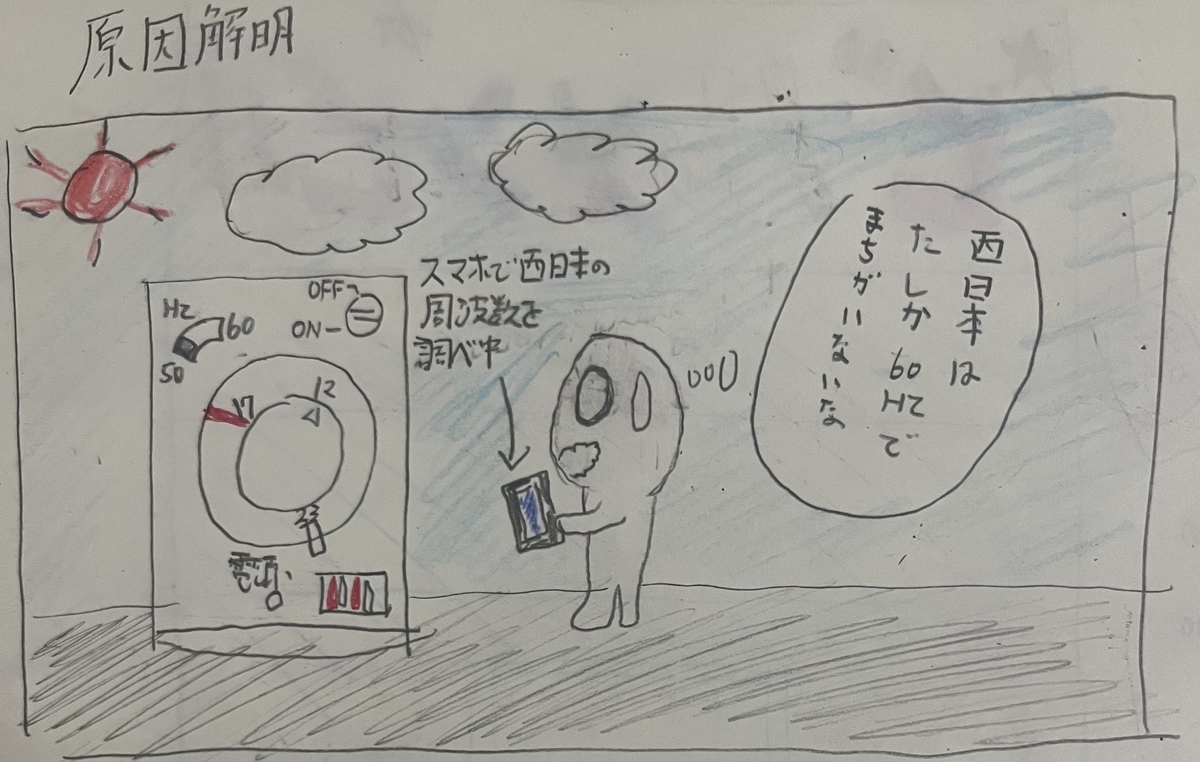 原因解明
OFF
ON
Hz
60
50
12
17
23
電源
スマホで西日本の
周波数を
調べ中
西日本は
たしか60HZで
まちがいないな